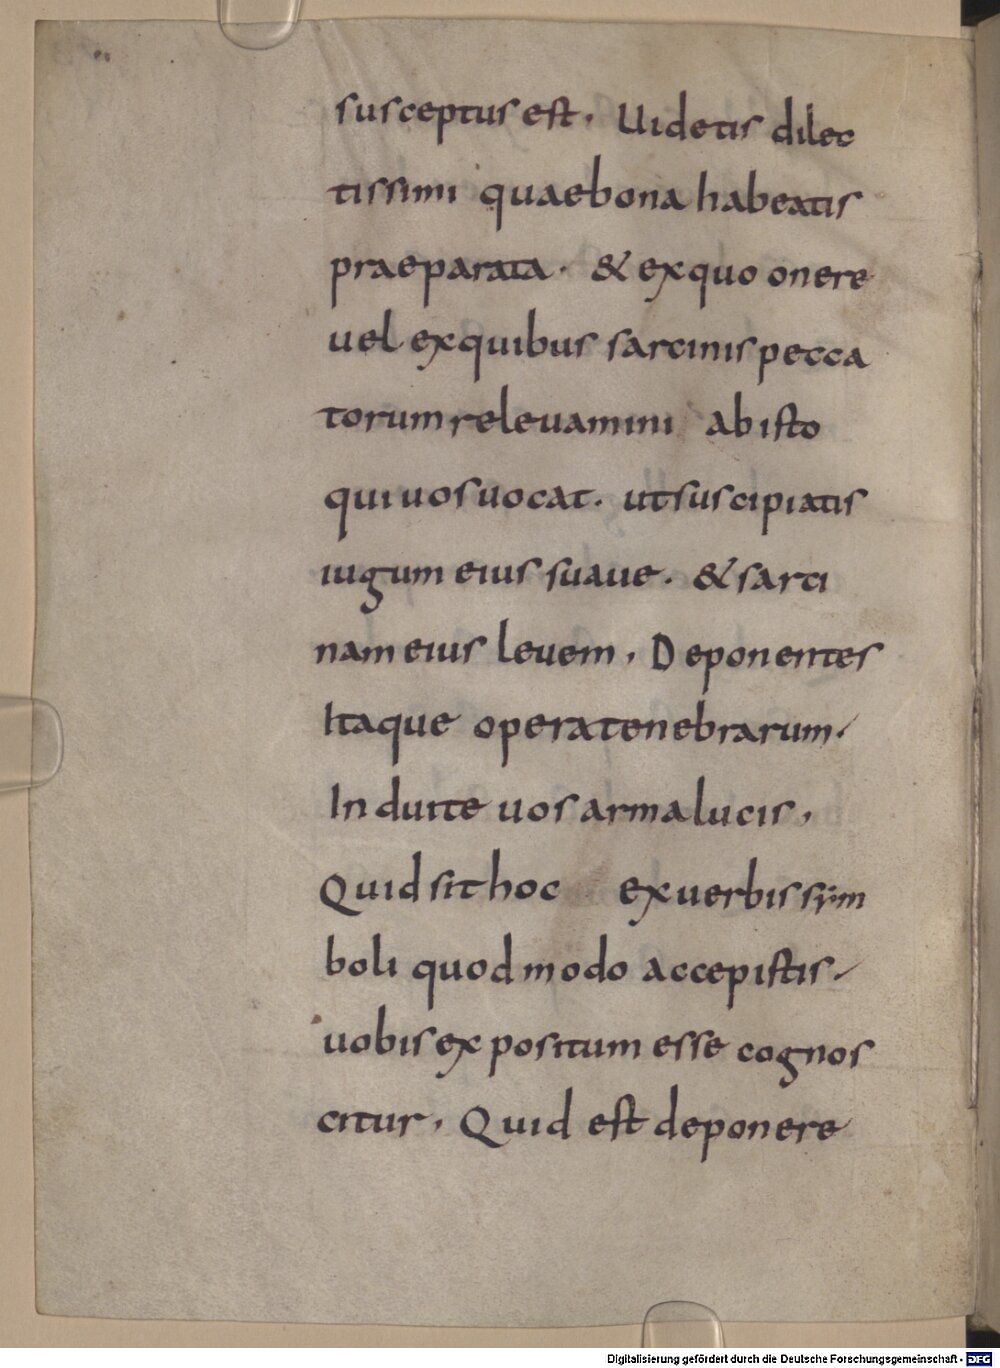 susceptus est. Uidetis dilec
tissimi quae bona habeatis
praeparata. & ex quo onere
uel ex quibus sarcinis pecca
torum releuamini ab isto
qui uos uocat. ut suscipiatis
iugum eius suaue. & sarci
nam eius leuem. Deponentes
Itaque opera tenebrarum.
Induite uos arma lucis,
Quid sit hoc ex uerbis sym
boli quod modo accepistis.
uobis expositum esse cognos
citur, Quid est deponere
Digitalisierung gefördert durch die Deutsche Forschungsgemeinschaft - DFG